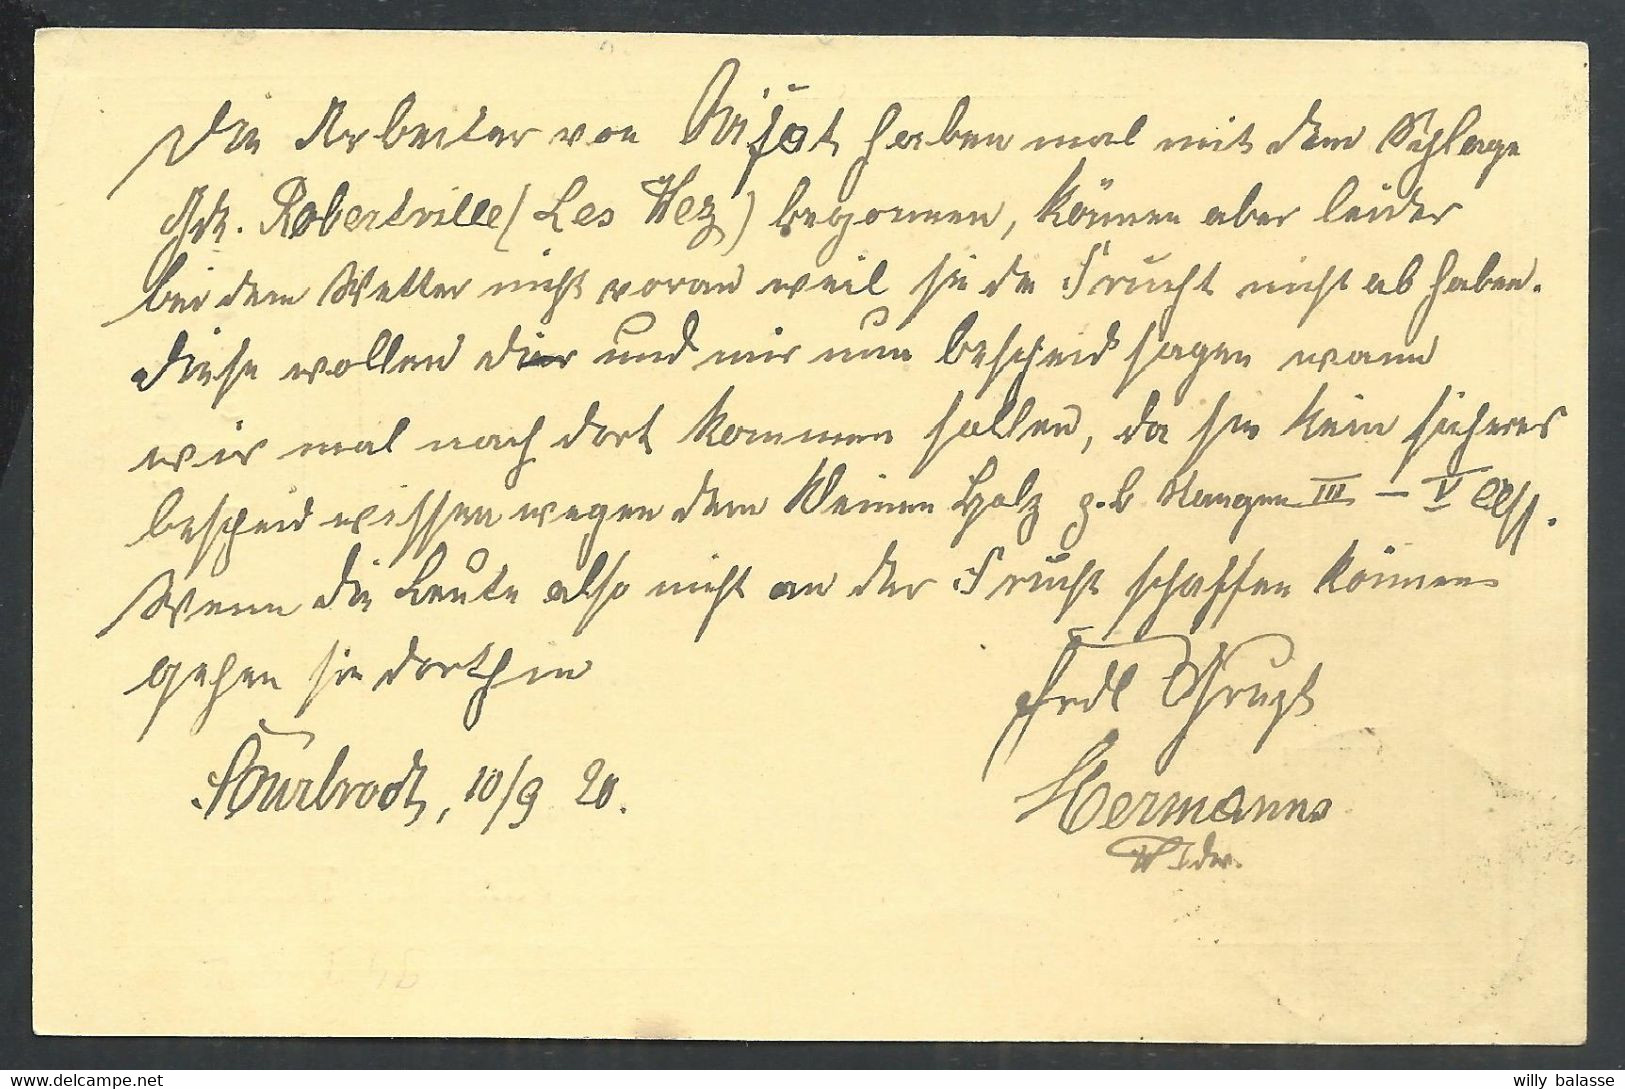 Die Arbeiter von haben mal mit dem Schlage
Gde. Robertville (Les Hez) begonnen, können aber leider
bei dem Wetter nicht voran weil sie die Frucht nicht ab haben.
diese wollen und nun bescheid sagen wann
wir mal nach dort kommen sollen, da sie kein sicheres
bescheid wissen wegen dem kleinen Holz z.b. Stangen III – V Cl.
Wenn die Leute also nicht an der Frucht schaffen können
gehen sie dorthin
Frdl Gruss
Sourbrodt, 10/9 20.
Hermanns
willy balasse